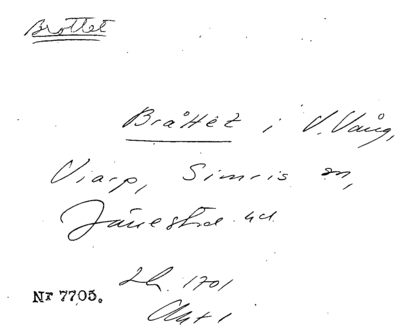 Brottet
Bråttet i V. Vång,
Viarp, Simris sn,
Järrestad hd
Lh. 1701
Akt 1
Nr 7705.